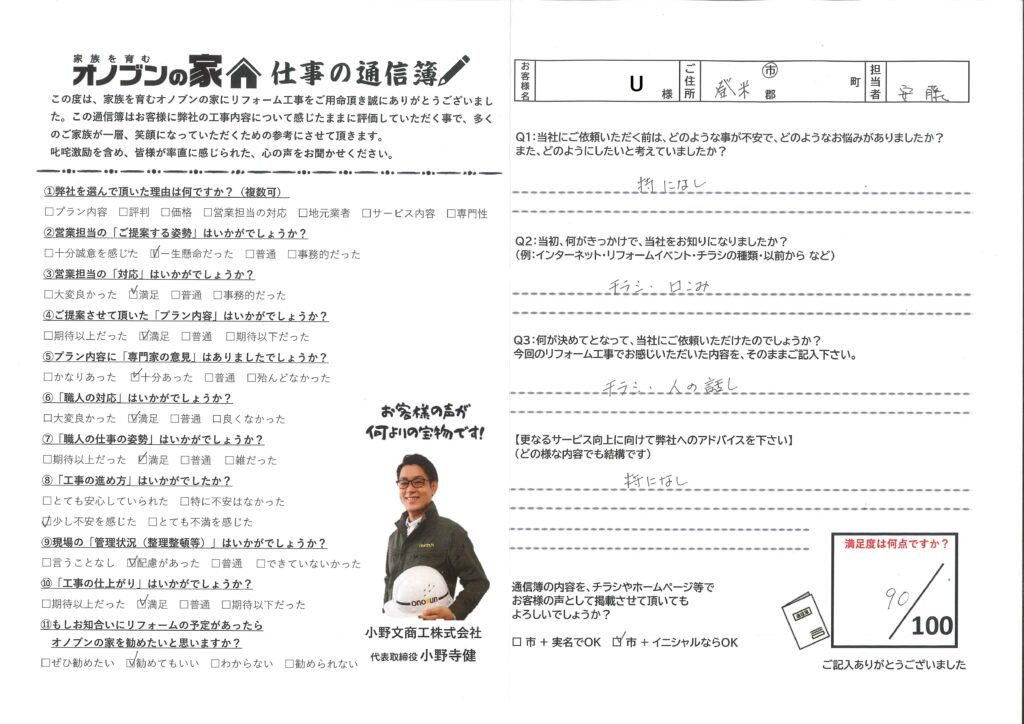 家族を育む
オノブンの家 仕事の通信簿
この度は、家族を育むオノブンの家にリフォーム工事をご用命頂き誠にありがとうございまし
た。この通信簿はお客様に弊社の工事内容について感じたままに評価していただく事で、多く
のご家族が一層、笑顔になっていただくための参考にさせて頂きます。
叱咤激励を含め、皆様が率直に感じられた、心の声をお聞かせください。
①弊社を選んで頂いた理由は何ですか？（複数可）
□プラン内容 □評判 □価格 □営業担当の対応 □地元業者 □サービス内容 □専門性
②営業担当の「ご提案する姿勢」はいかがでしょうか？
□十分誠意を感じた ☑一生懸命だった □普通 □事務的だった
③営業担当の「対応」はいかがでしょうか？
□大変良かった ☑満足 □普通 □事務的だった
④ご提案させて頂いた「プラン内容」はいかがでしょうか？
□期待以上だった ☑満足 □普通 □期待以下だった
⑤プラン内容に「専門家の意見」はありましたでしょうか？
□かなりあった ☑十分あった □普通 □殆んどなかった
⑥「職人の対応」はいかがでしょうか？
□大変良かった ☑満足 □普通 □良くなかった
⑦「職人の仕事の姿勢」はいかがでしょうか？
□期待以上だった ☑満足 □普通 □雑だった
⑧「工事の進め方」はいかがでしたか？
□とても安心していられた □特に不安はなかった
☑少し不安を感じた □とても不満を感じた
⑨現場の「管理状況（整理整頓等）」はいかがでしょうか？
□言うことなし ☑配慮があった □普通 □できていないかった
⑩「工事の仕上がり」はいかがでしょうか？
□期待以上だった ☑満足 □普通 □期待以下だった
⑪もしお知合いにリフォームの予定があったら
オノブンの家を勧めたいと思いますか？
□ぜひ勧めたい ☑勧めてもいい □わからない □勧められない
お客様の声が
何よりの宝物です！
onobun
小野文商工株式会社
代表取締役 小野寺健
お客様名 U 様 ご住所 登米 市 郡 町 担当者 安藤
Q1：当社にご依頼いただく前は、どのような事が不安で、どのようなお悩みがありましたか？
また、どのようにしたいと考えていましたか？
特になし
Q2：当初、何がきっかけで、当社をお知りになりましたか？
（例：インターネット・リフォームイベント・チラシの種類・以前から など）
チラシ・口こみ
Q3：何が決めてとなって、当社にご依頼いただけたのでしょうか？
今回のリフォーム工事でお感じいただいた内容を、そのままご記入下さい。
チラシ・人の話し
【更なるサービス向上に向けて弊社へのアドバイスを下さい】
（どの様な内容でも結構です）
特になし
満足度は何点ですか？
90/100
通信簿の内容を、チラシやホームページ等で
お客様の声として掲載させて頂いても
よろしいでしょうか？
□ 市 + 実名でOK ☑市 + イニシャルならOK
ご記入ありがとうございました